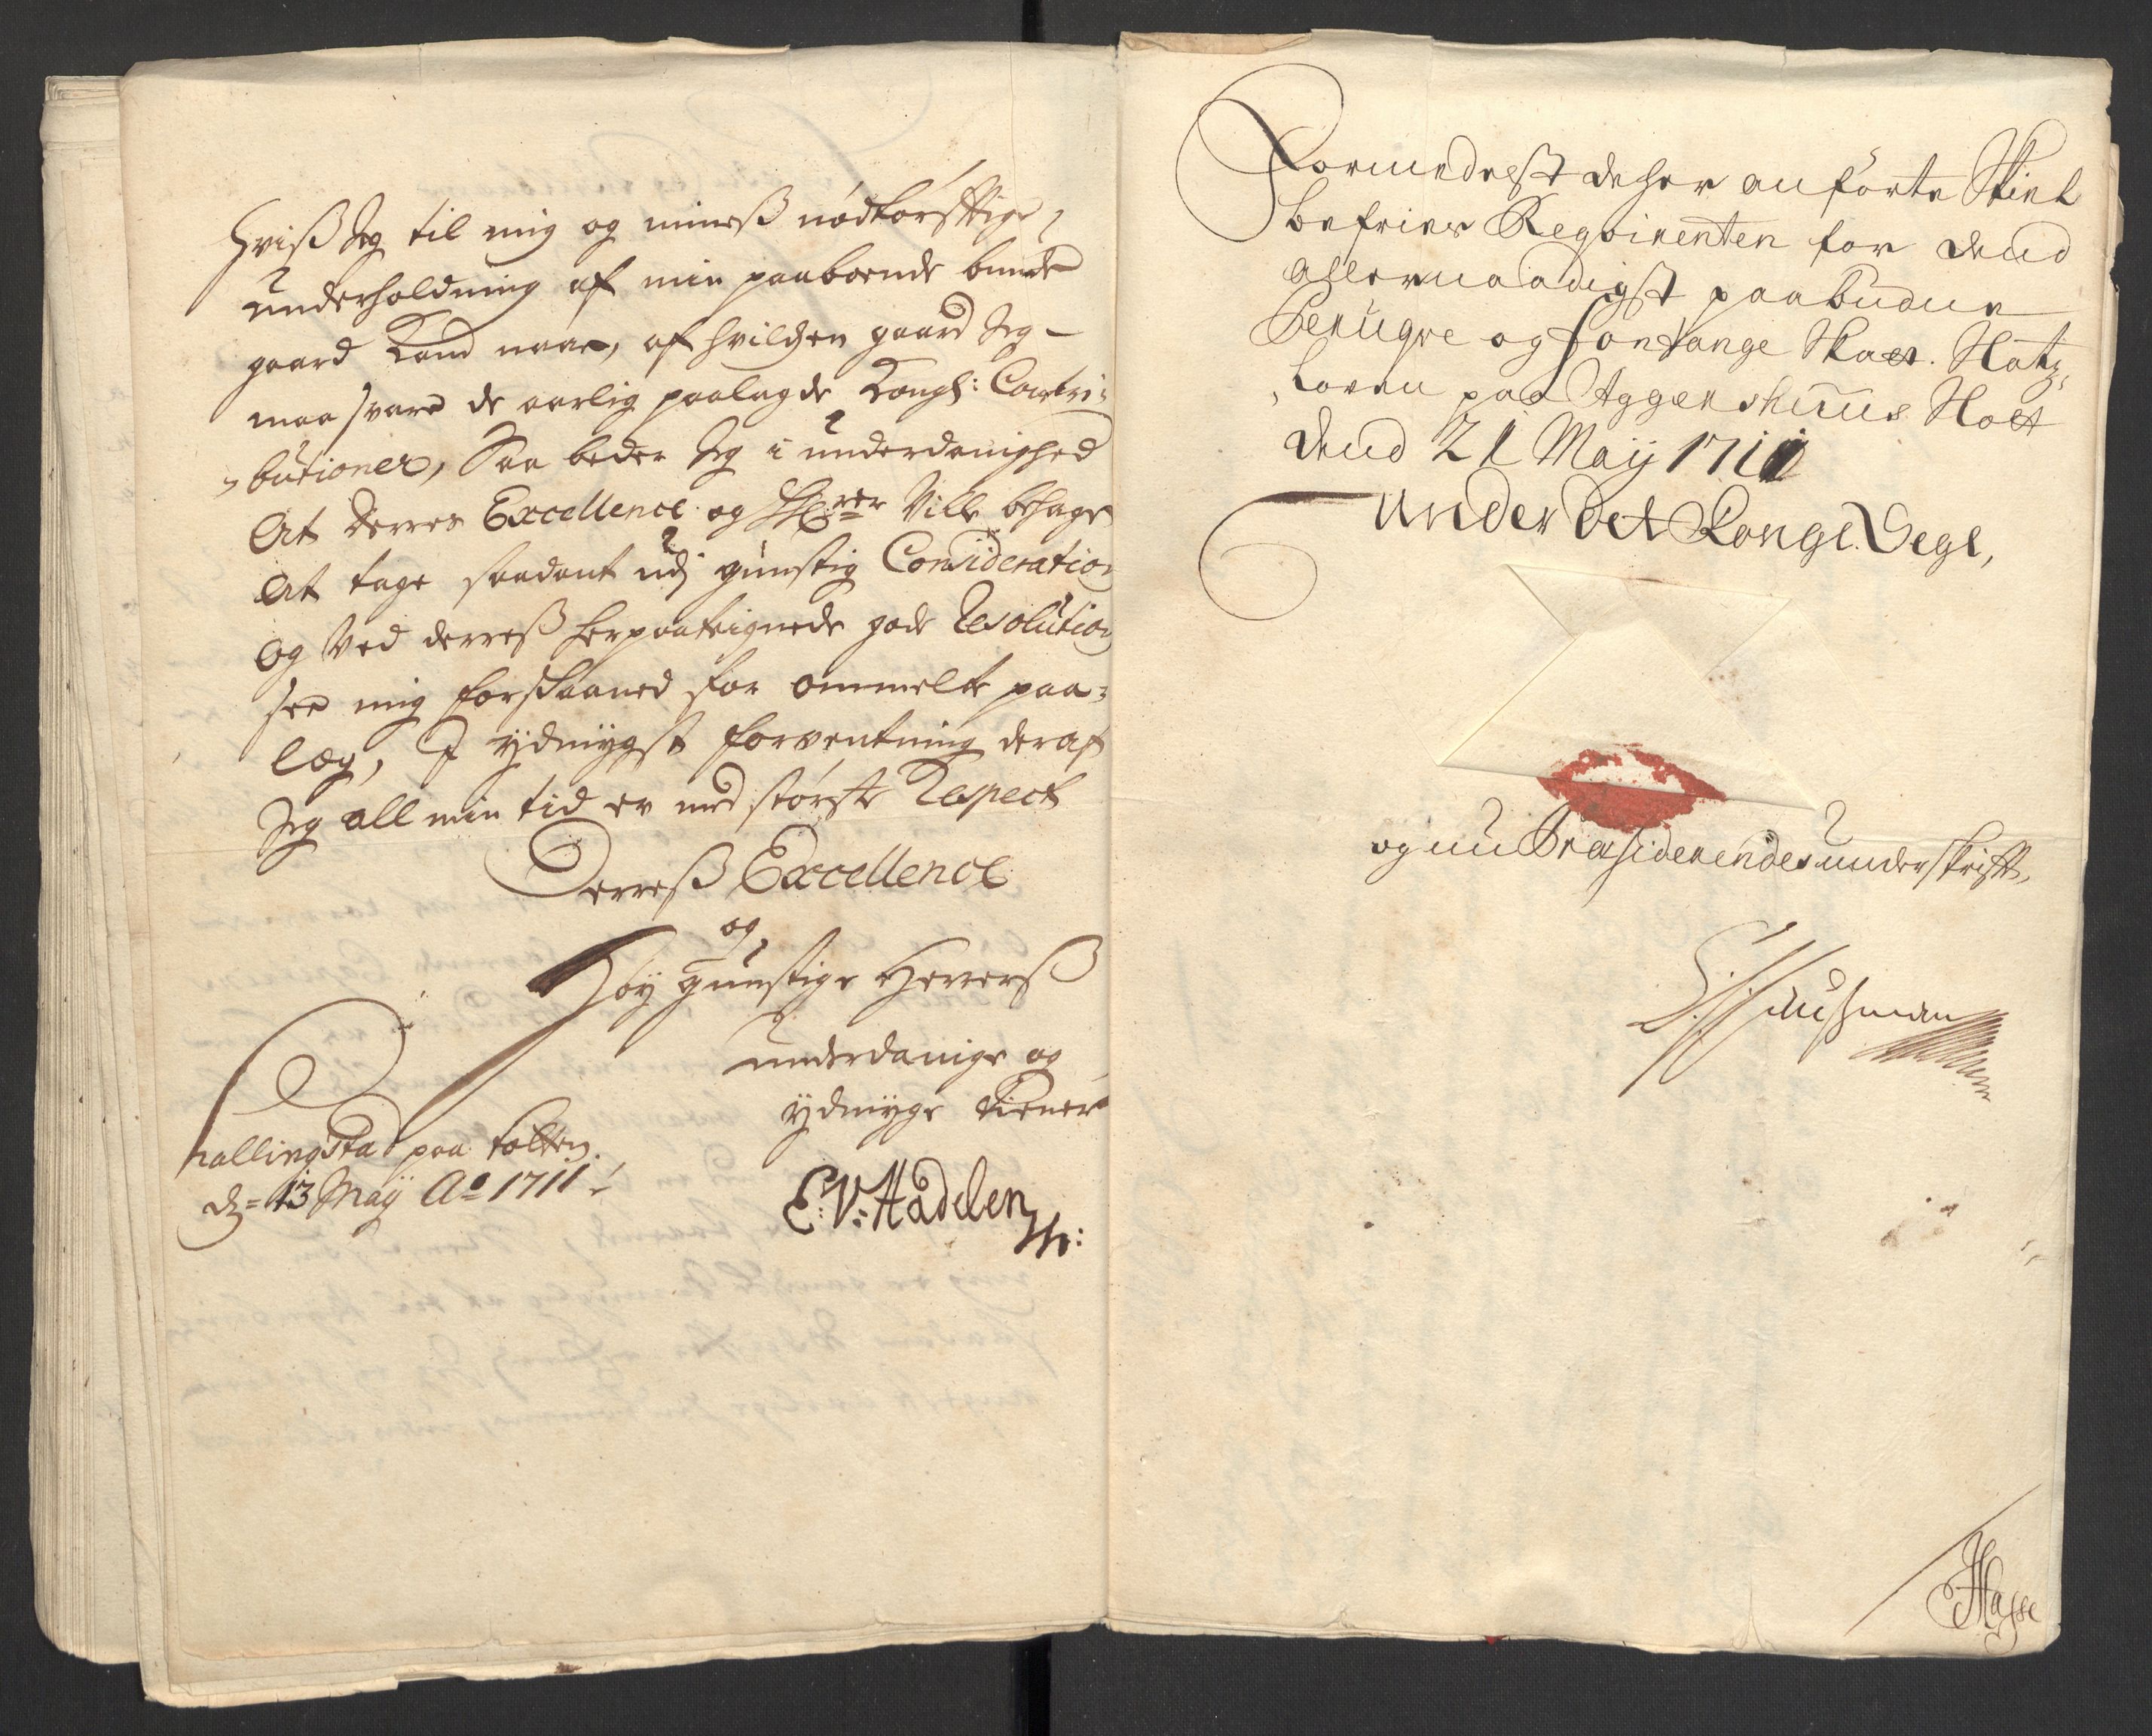 hviß Jeg til mig og mineß nödtörfftige
underholdning af min paaboende bunde
gaard kand naae, af hvilchen gaard Jeg
maa svare de aarlig paalagde Kongl: Contri-
butioner, Saa beder Jeg i underdanighed
At Deres Excellence og HHrer Ville behage
At tage saadant udj gunstig Consideration
og Ved derreß herpaateignede gode Resolution
see mig forskaaned for ommelte paa-
læg, I ydmygst forventning deraf
Jeg all min tid er med störste Respect
Derreß Excellence
og
Höy gunstige Herrerß
underdanige og
ydmyge tiener
hallingstad paa totten
d= 13 Maÿ Ao 1711
E: V: Hadelen
Formedelst de her anförte Skiel
befries Reqvirenten for dend
allernaadigst paabudne
Peruqve og fontange Skatt. Slotz-
loven paa Aggershuus Slott
dend 21 Maij 1711
Under Det Kongl. Segl,
og nu Præsiderendes underskrift,
Hausman
Hasse